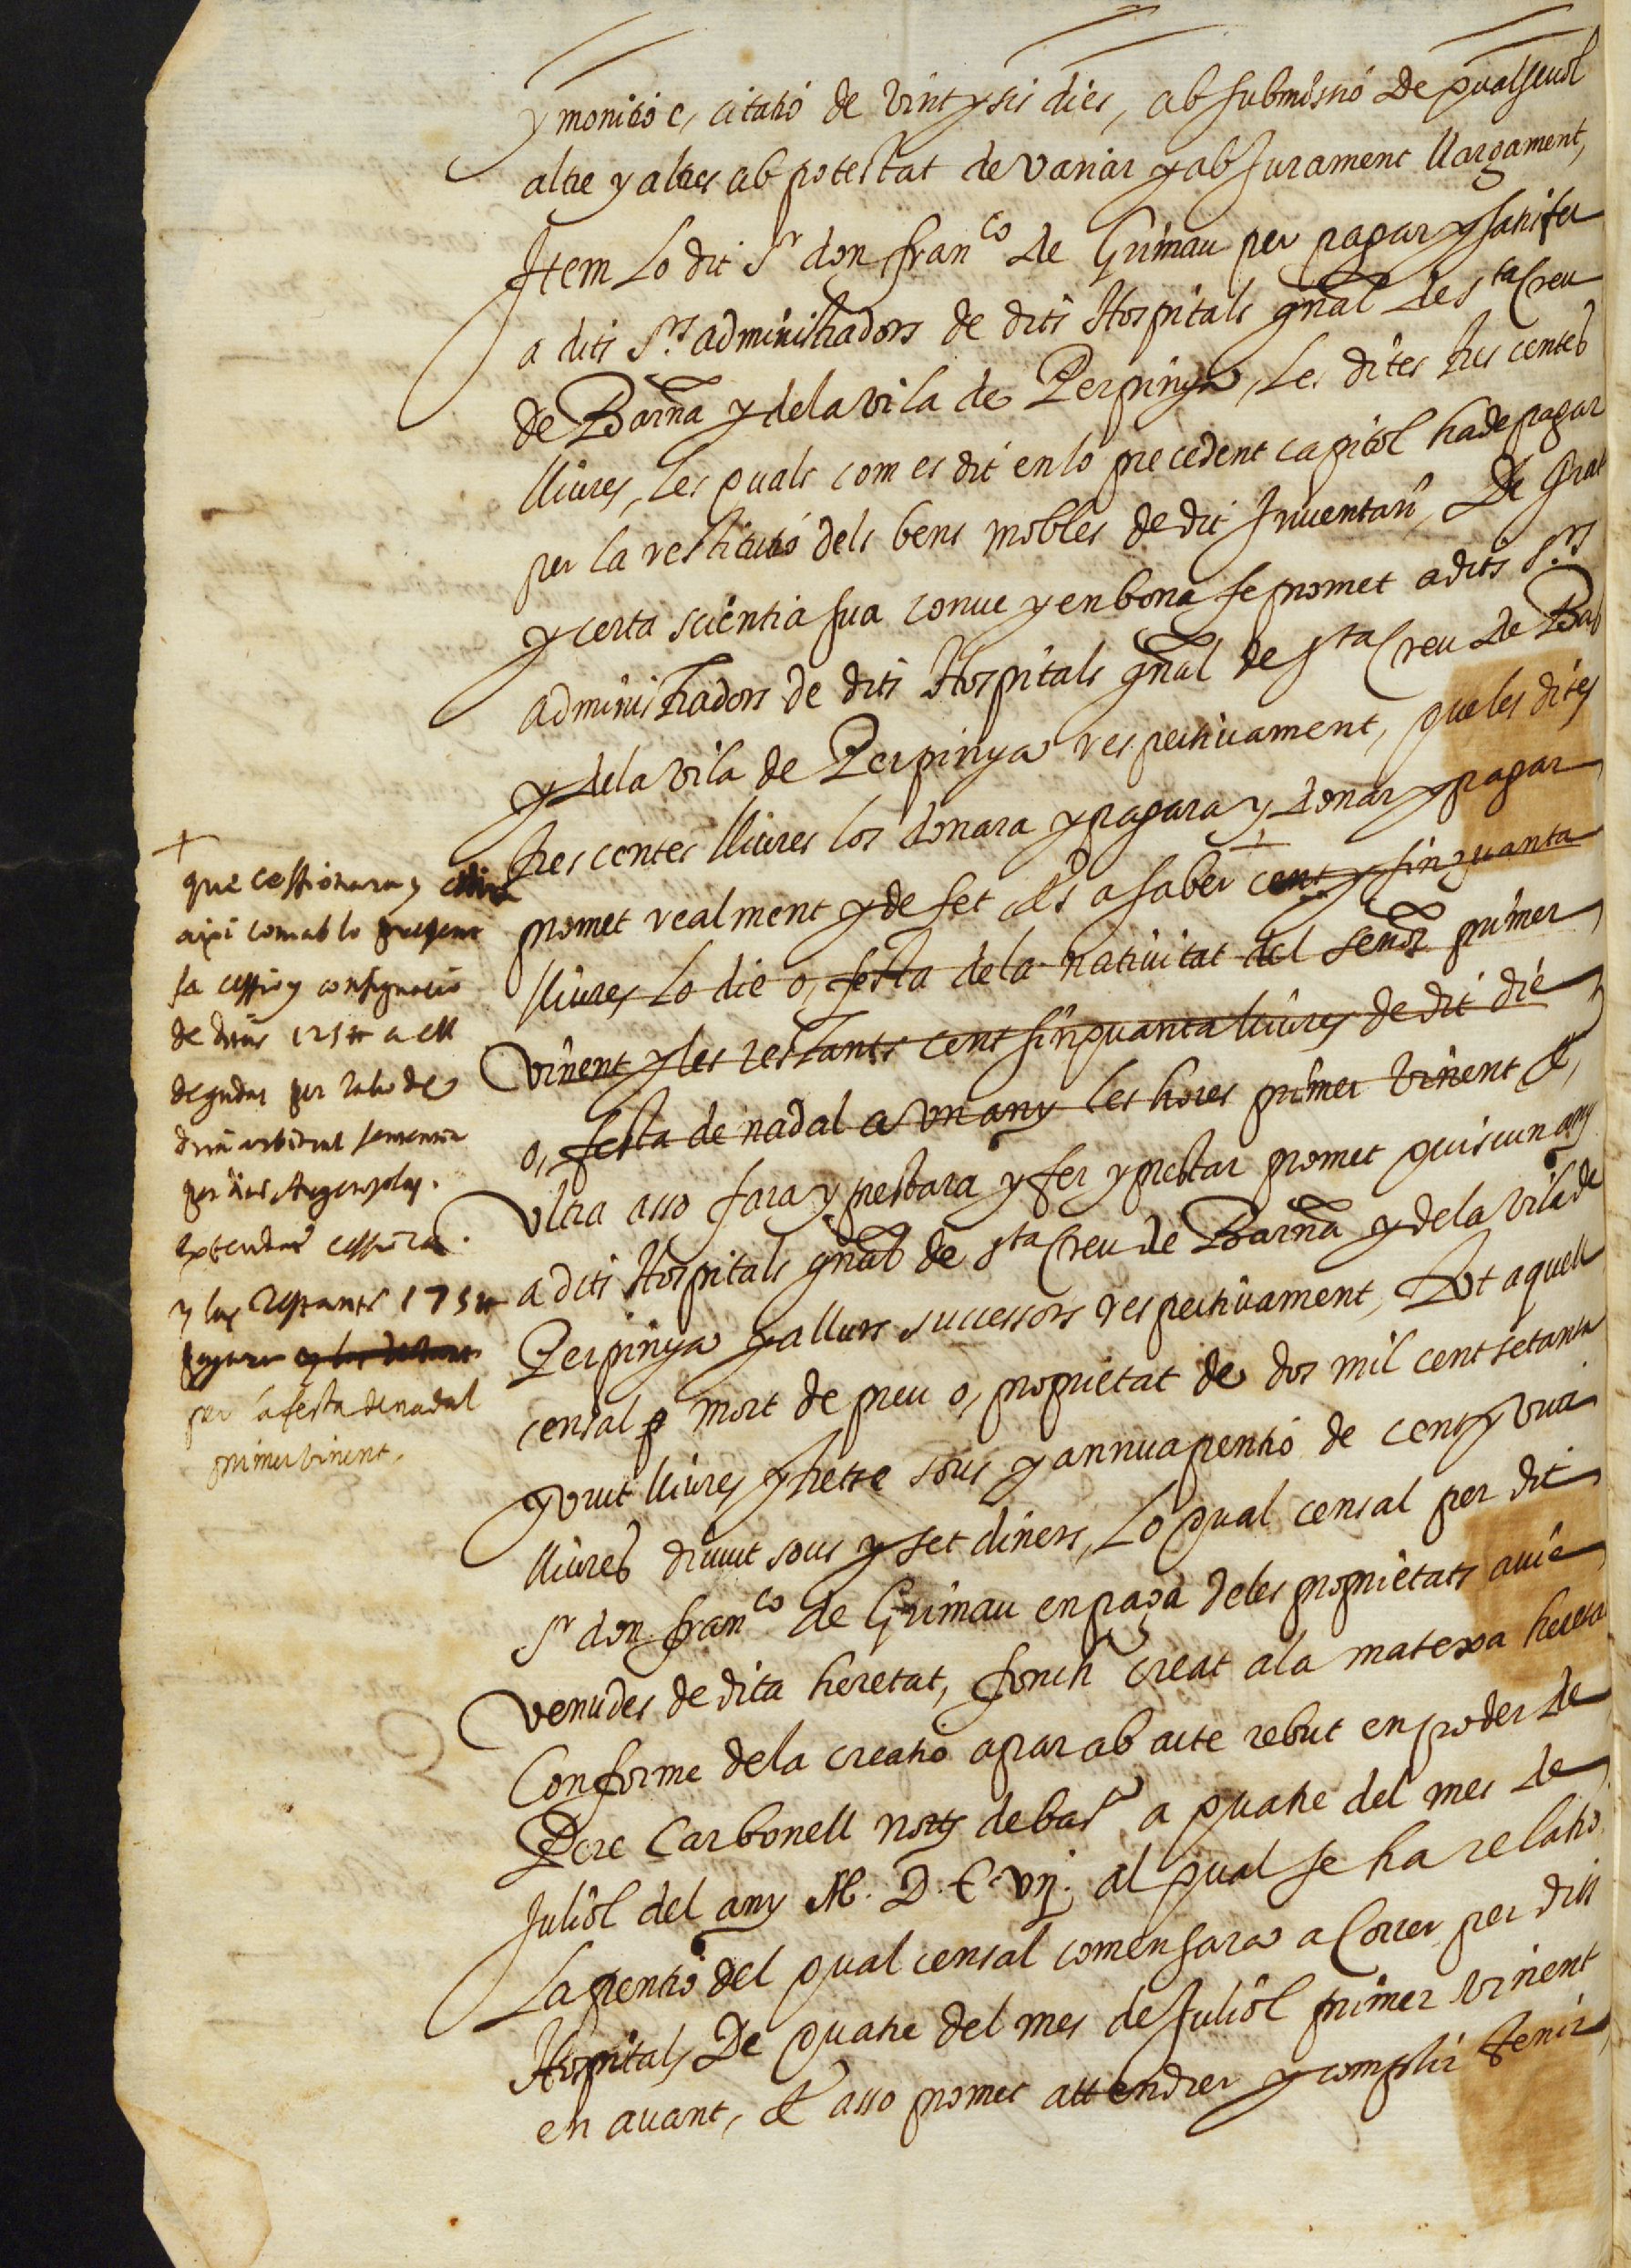 y monitio e, citatio de vint y sis dies, ab submissio de qualsevol
altre y altres ab potestat de variar y ab jurament llargament,
Item lo dit Sr don franco de Grimau per pagar y satisfer
a dits Srs administradors de dits Hospitals gñal de Sta Creu
de Barña y de la vila de Perpinya, les dites tres centes
lliures, les quals com es dit en lo precedent capitol ha de pagar
per la restitutio dels bens mobles de dit Inventari, De Grat
y certa scientia sua conve y en bona fe promet a dits Srs
administradors de dits Hospitals gñal de Sta Creu de Bar
y de la vila de Perpinya respectivament, que les dites
tres centes lliures los donara y pagara y donar y pagar
promet realment y de fet ço es a saber cent y sinquanta
lliures lo die o, festa de la nativitat del señor primer
vinent y les restants cent sinquanta lliures de dit die
o, festa de nadal a un any les hores primer vinent E,
ultra asso fara y prestara y fer y prestar promet quiscun any
a dits Hospitals gñal de Sta Creu de Barña y de la vila de
Perpinya y a llurs successors respectivament, Tot aquell
censal mort de preu o, proprietat de dos mil cent setanta
y vuit lliures y tretze sous y annua pentio de cent y una
lliures divuit sous y set diners, lo qual censal per dit
Sr don franco de Grimau en paga de les proprietats a vie
venudes de dita heretat, fonch creat a la matexa hereta
Conforme de la creatio apar ab acte rebut en poder de
Pere Carbonell notj de bar a quatre del mes de
Juliol del any M. D. C. vij. al qual se ha relatio.
La pentio del qual censal comensara a Correr per dits
Hospitals De quatre del mes de Juliol primer vinent
en avant, E asso promet attendrer y complir tenir
+
que cessionara y
axi com ab lo present
fa cessio y consignacio
de ditas 125 ℔ a ell
degudas per raho de
dita arbitral sententia
per dits
cessio
y las restants 175 ℔
pagara
per la festa de nadal
primer vinent.